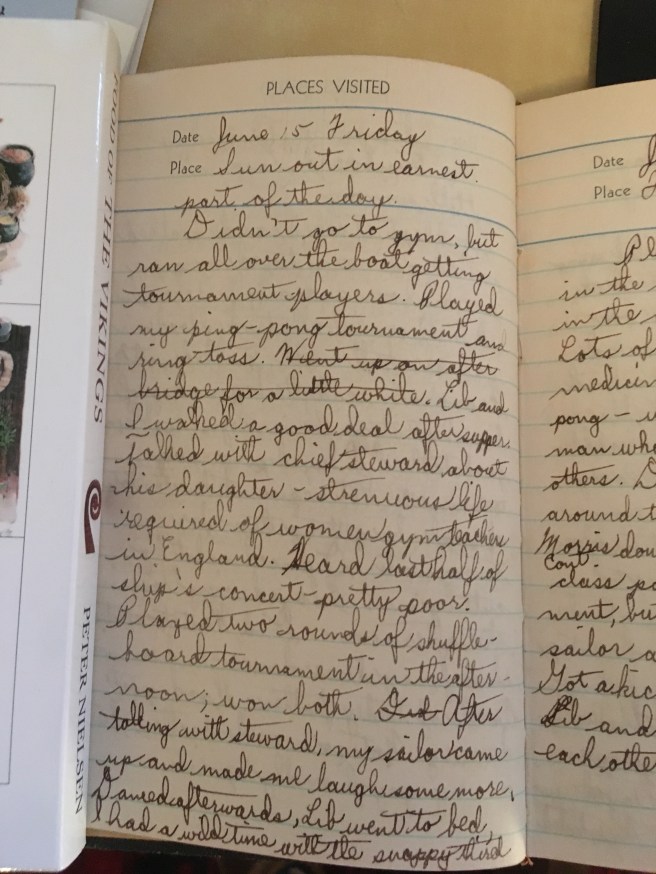 FOOD OF THE VIKINGS
PETER NIELSEN
PLACES VISITED
Date June 15 Friday
Place Sun out in earnest
part of the day.
Didn't go to gym, but
ran all over the boat getting
tournament players. Played
my ping-pong tournament and
ring toss. Went up on after
bridge for a little while. Lib and
I walked a good deal after supper.
Talked with chief steward about
his daughter - strenuous life
required of women gym teachers
in England. Heard last half of
ship's concert - pretty poor.
Played two rounds of shuffle-
board tournament in the after-
noon; won both. Did After
talking with steward, my sailor came
up and made me laugh some more.
Danced afterwards, Lib went to bed,
I had a wild time with the snappy third
Date J
Place
Pl
in the
in the
Lots of
medicin
pong -
man who
others. D
around t
Morris dou
Cont
class
ment, but
sailor a
Got a kic
Lib and
each othe